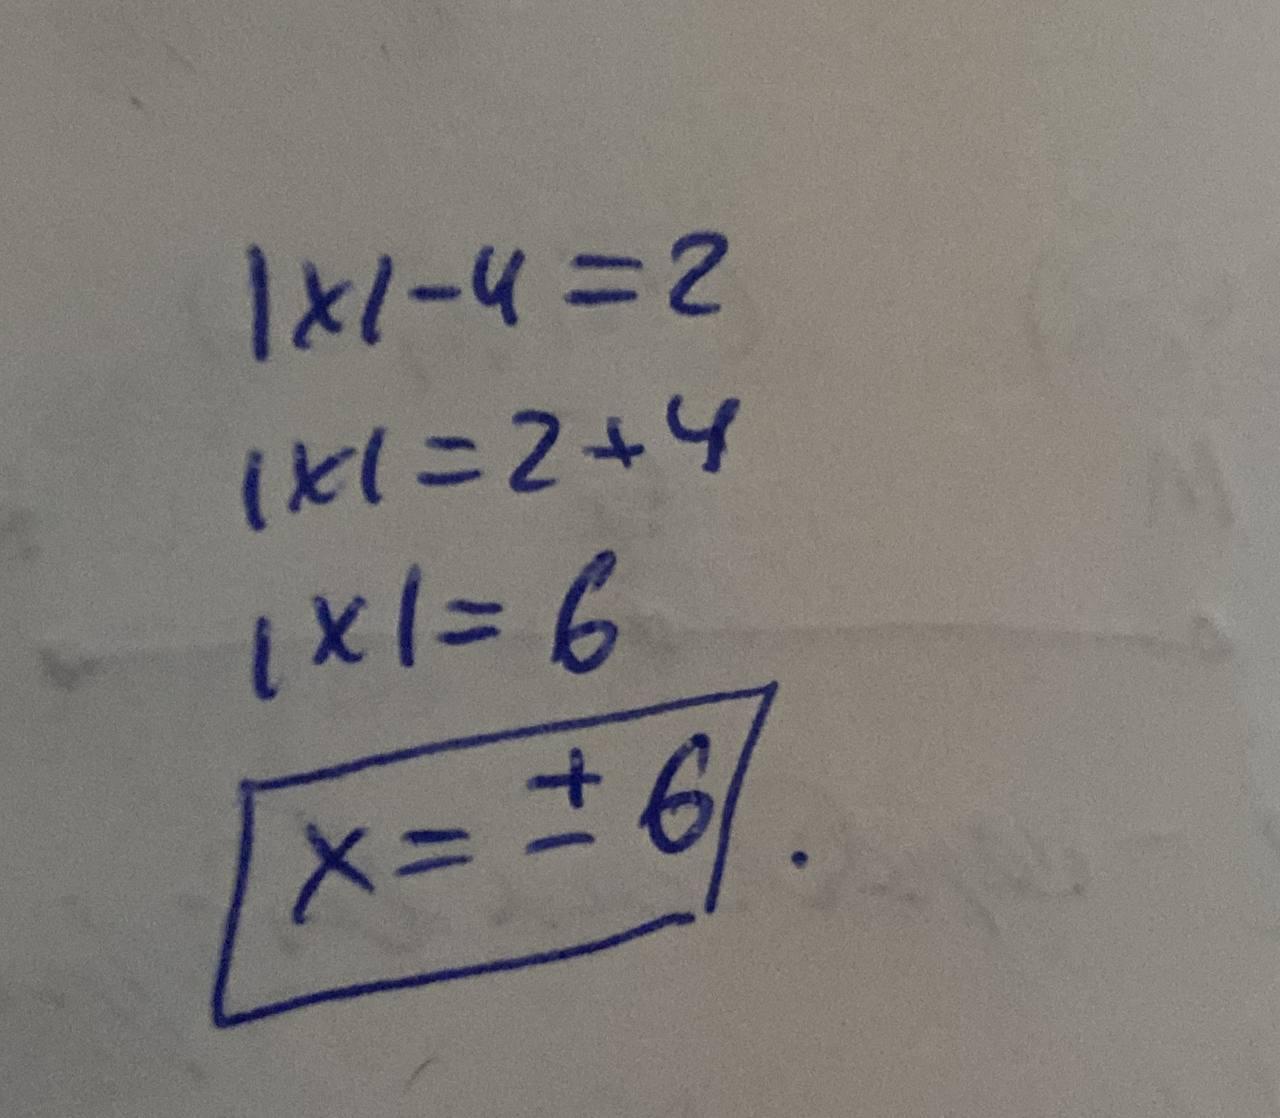 |x|-4=2
|x|=2+4
|x|=6
x=±6.